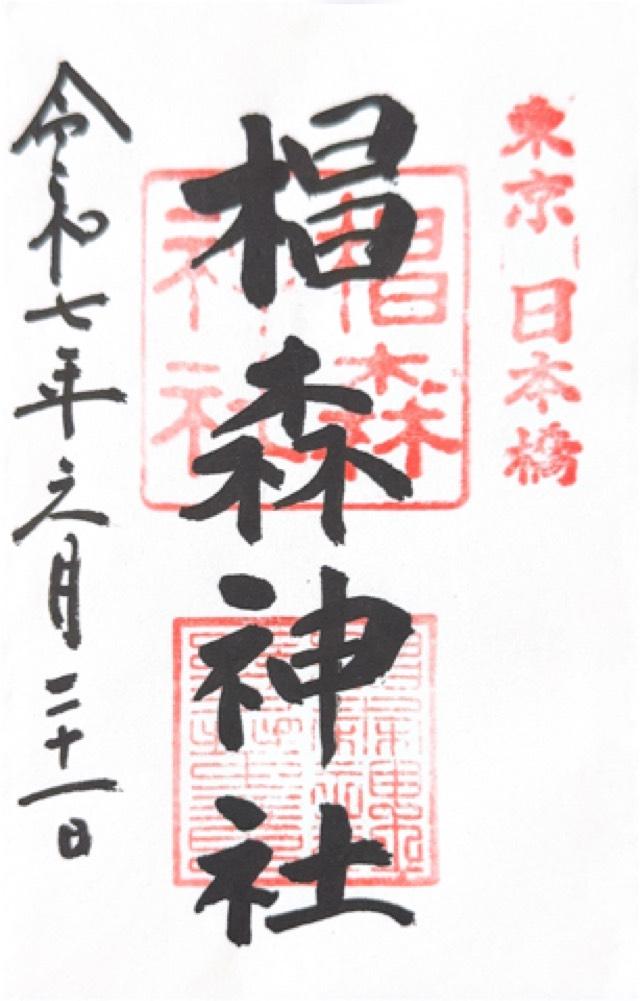 東京 日本橋
椙森神社
椙森
神社
令和七年六月二十一日